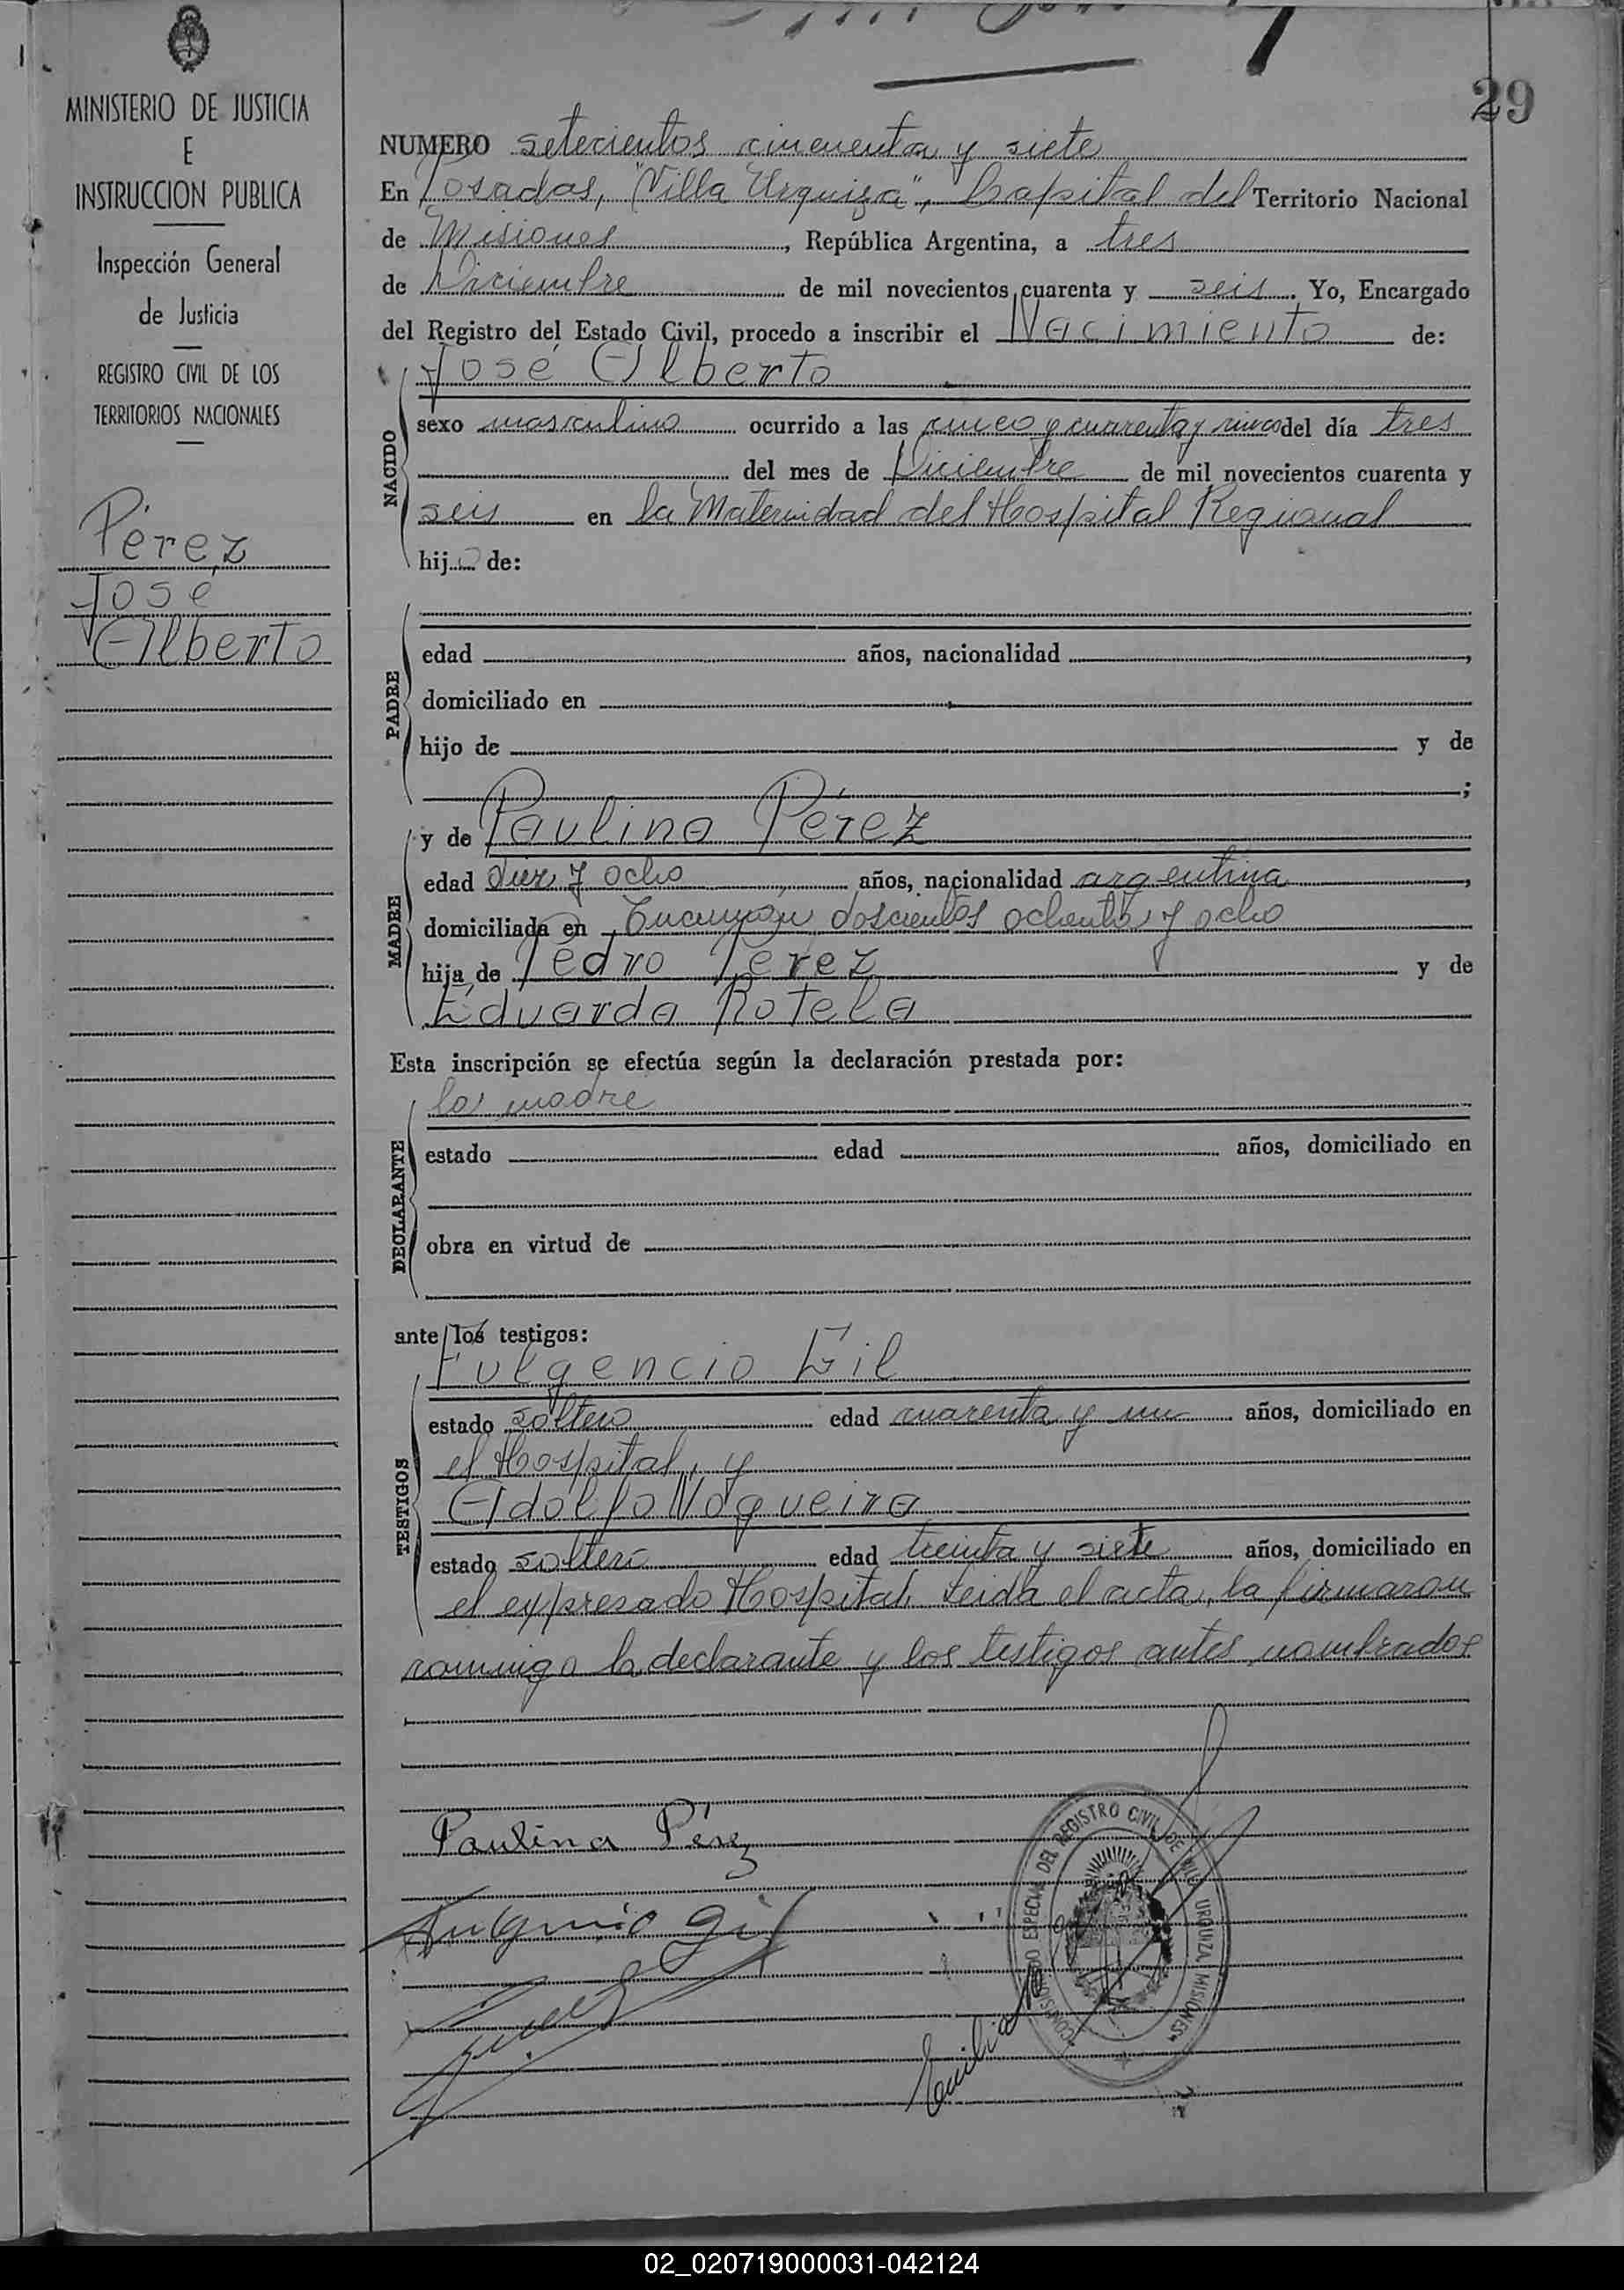 29
MINISTERIO DE JUSTICIA
E
INSTRUCCION PUBLICA
Inspección General
de Justicia
REGISTRO CIVIL DE LOS
TERRITORIOS NACIONALES
Pérez
José
Alberto
NUMERO setecientos cincuenta y siete
En Posadas, "Villa Urquiza", Capital del Territorio Nacional
de Misiones, República Argentina, a tres
de Diciembre de mil novecientos cuarenta y seis. Yo, Encargado
del Registro del Estado Civil, procedo a inscribir el Nacimiento de:
José Alberto
NACIDO
sexo masculino ocurrido a las cinco y cuarenta y cinco del día tres
del mes de Diciembre de mil novecientos cuarenta y
seis en la Maternidad del Hospital Regional
hijo de:
PADRE
edad años, nacionalidad ,
domiciliado en
hijo de y de
;
MADRE
y de Paulina Pérez
edad diez y ocho años, nacionalidad argentina,
domiciliada en Tucumán doscientos ochenta y ocho
hija de Pedro Perez y de
Eduarda Rotela
Esta inscripción se efectúa según la declaración prestada por:
la madre
DECLARANTE
estado edad años, domiciliado en
obra en virtud de
ante los testigos:
Fulgencio Gil
TESTIGOS
estado soltero edad cuarenta y un años, domiciliado en
el Hospital, y
Adolfo Nogueira
estado soltero edad treinta y siete años, domiciliado en
el expresado Hospital. Leida el acta, la firmaron
conmigo la declarante y los testigos antes nombrados
Paulina Pérez
Fulgencio Gil
Emilia
COMISIONADO ESPECIAL DEL REGISTRO CIVIL DE VILLA URQUIZA MISIONES
02_020719000031-042124